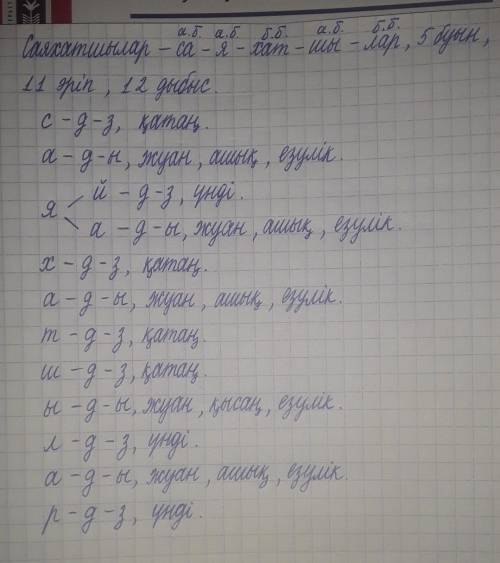 а.б. а.б. б.б. а.б. б.б.
Саяхатшылар – са – я – хат – шы – лар, 5 буын,
11 әріп, 12 дыбыс.
с – д – з, қатаң.
а – д – ы, жуан, ашық, езулік.
я
й – д – з, үнді.
а – д – ы, жуан, ашық, езулік.
х – д – з, қатаң.
а – д – ы, жуан, ашық, езулік.
т – д – з, қатаң.
ш – д – з, қатаң.
ы – д – ы, жуан, қысаң, езулік.
л – д – з, үнді.
а – д – ы, жуан, ашық, езулік.
р – д – з, үнді.